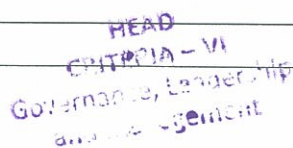 HEAD
CRITERIA – VI
Governance, Leadership
and Management